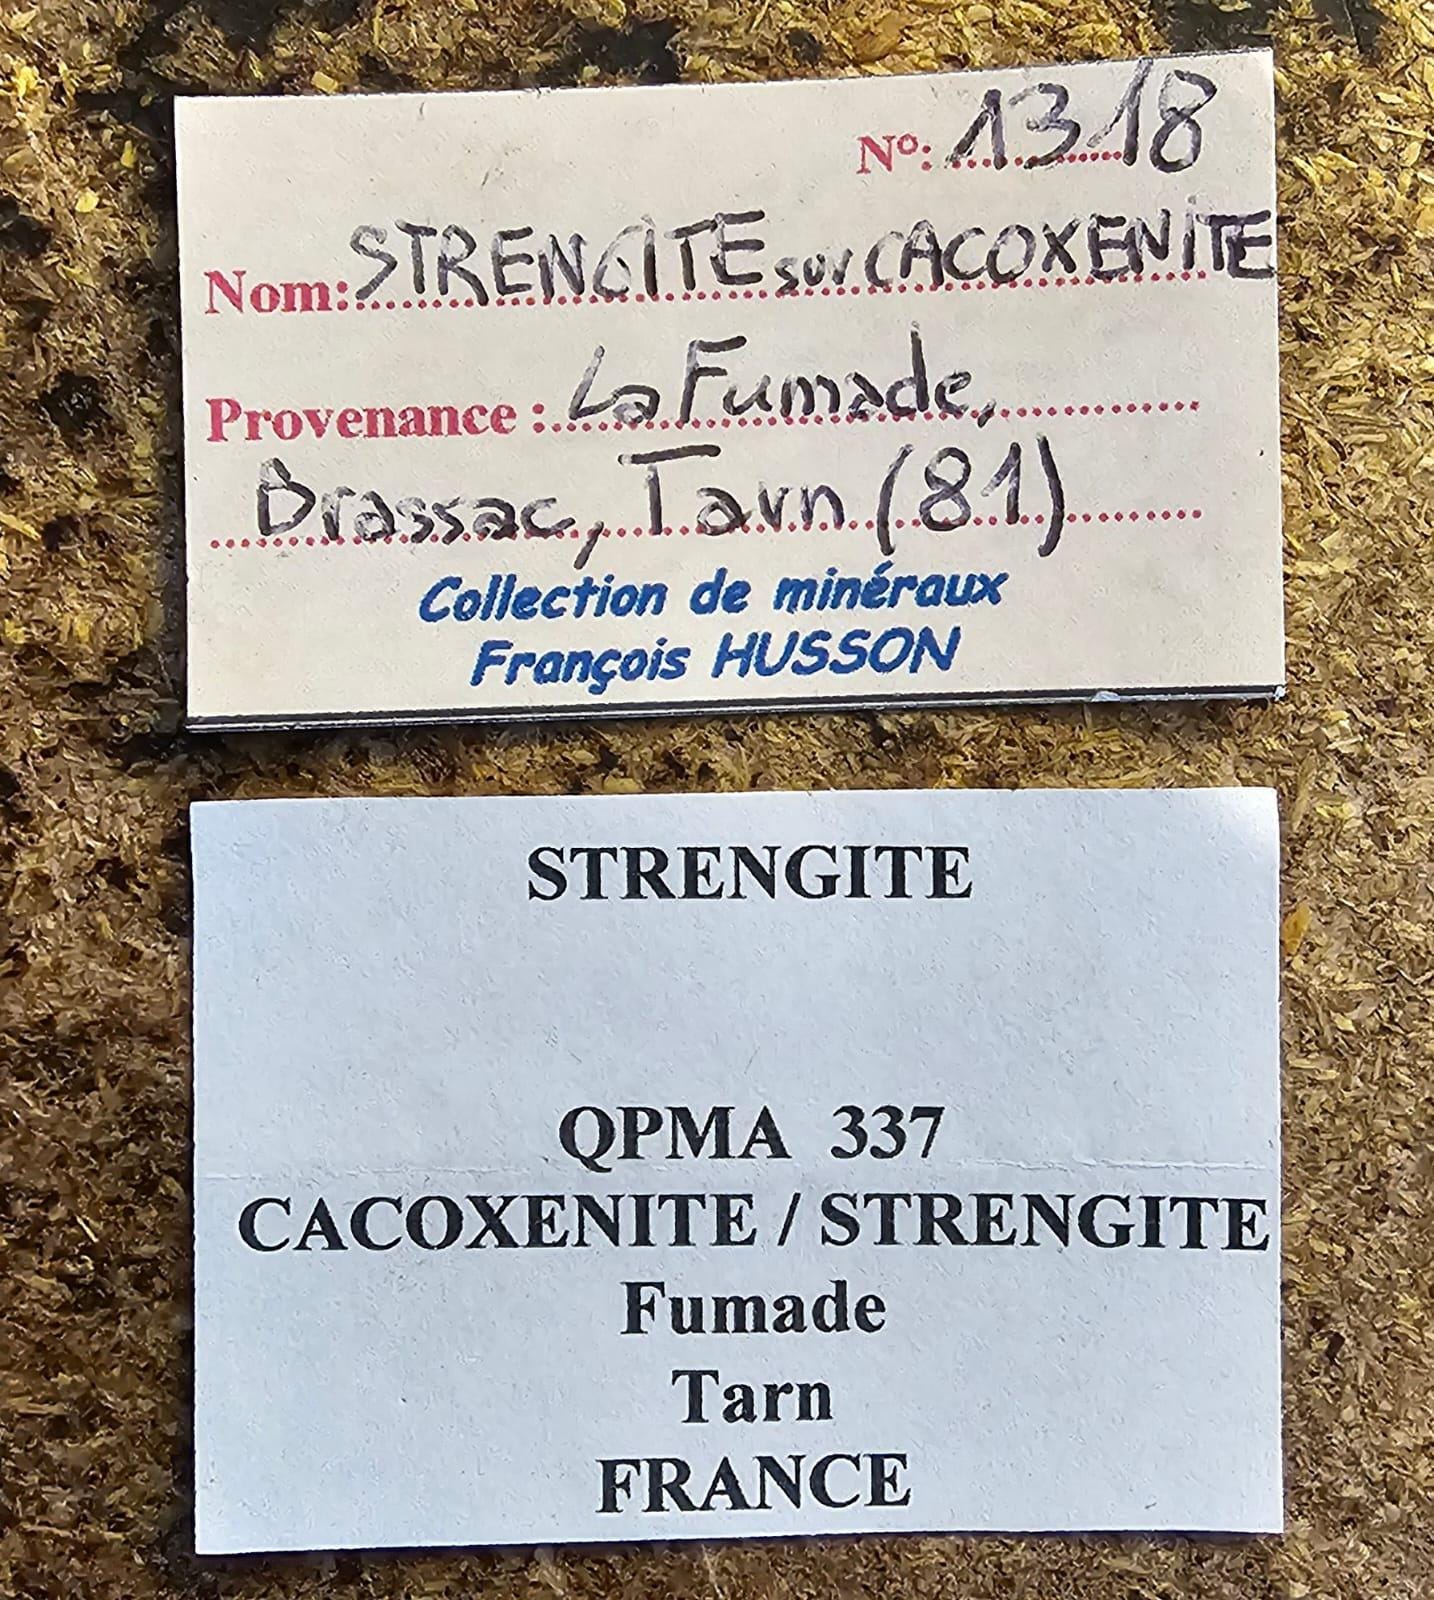 N°: 1318
Nom: STRENGITE sur CACOXENITE
Provenance : La Fumade,
Brassac, Tarn (81)
Collection de minéraux
François HUSSON
STRENGITE
QPMA 337
CACOXENITE / STRENGITE
Fumade
Tarn
FRANCE